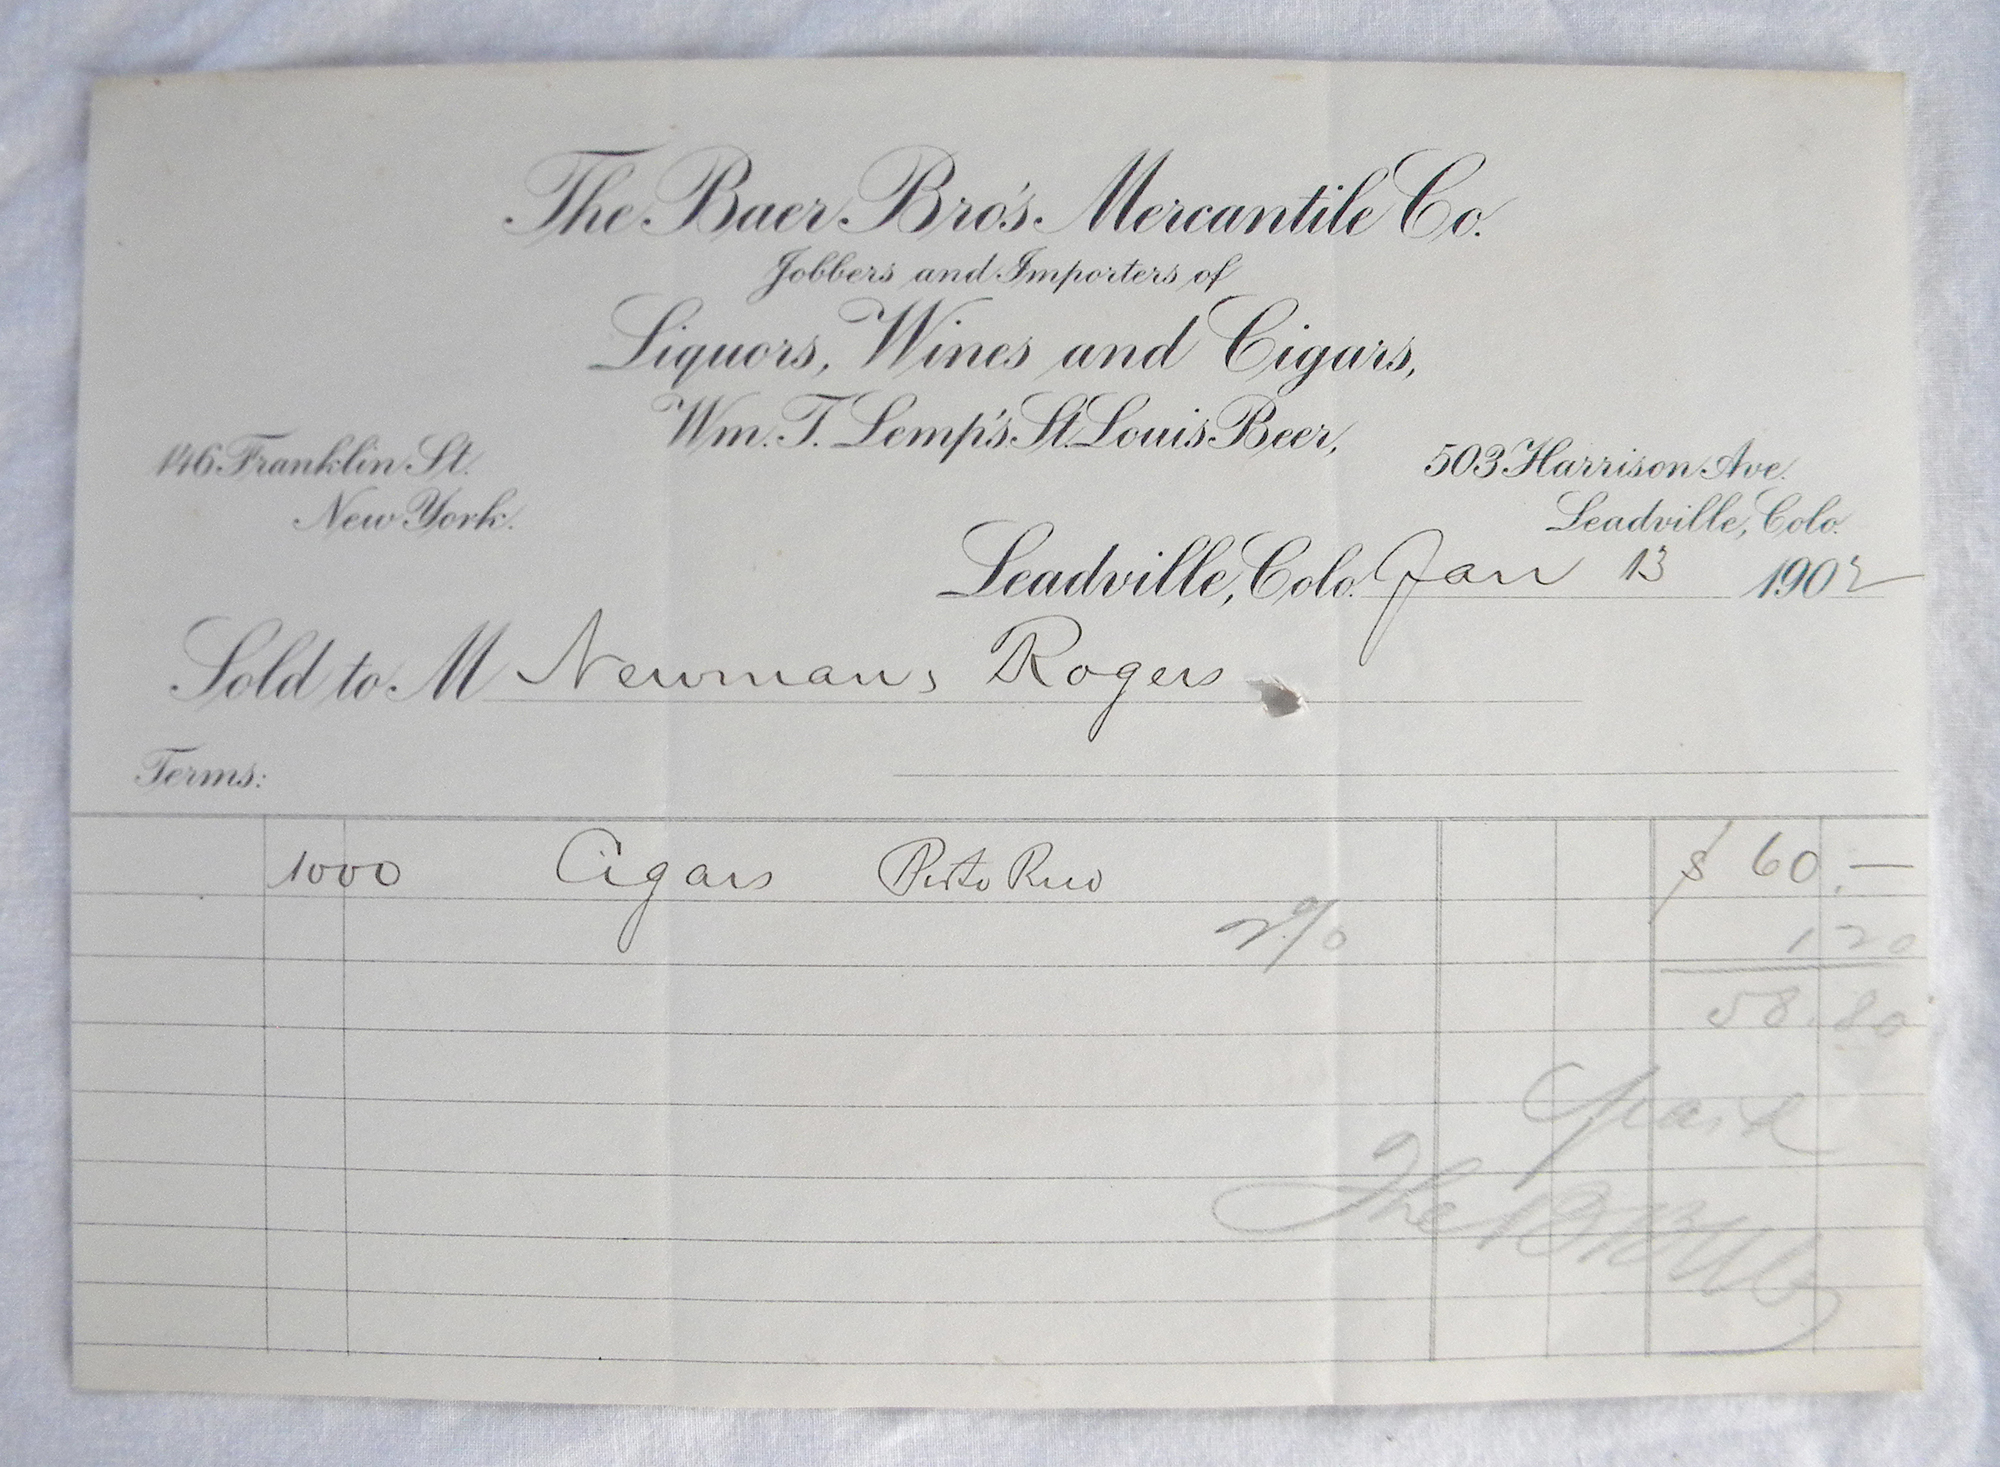 The Baer Bro's. Mercantile Co.
Jobbers and Importers of
Liquors, Wines and Cigars,
Wm. T. Lemp's St. Louis Beer,
146 Franklin St.
New York.
503 Harrison Ave.
Leadville, Colo.
Leadville, Colo. Jan 13 1902
Sold to M Newman, Rogers
Terms:
1000 Cigars Porto Rico $ 60.—
2% 1.20
58.80
Paid
The B B M Co